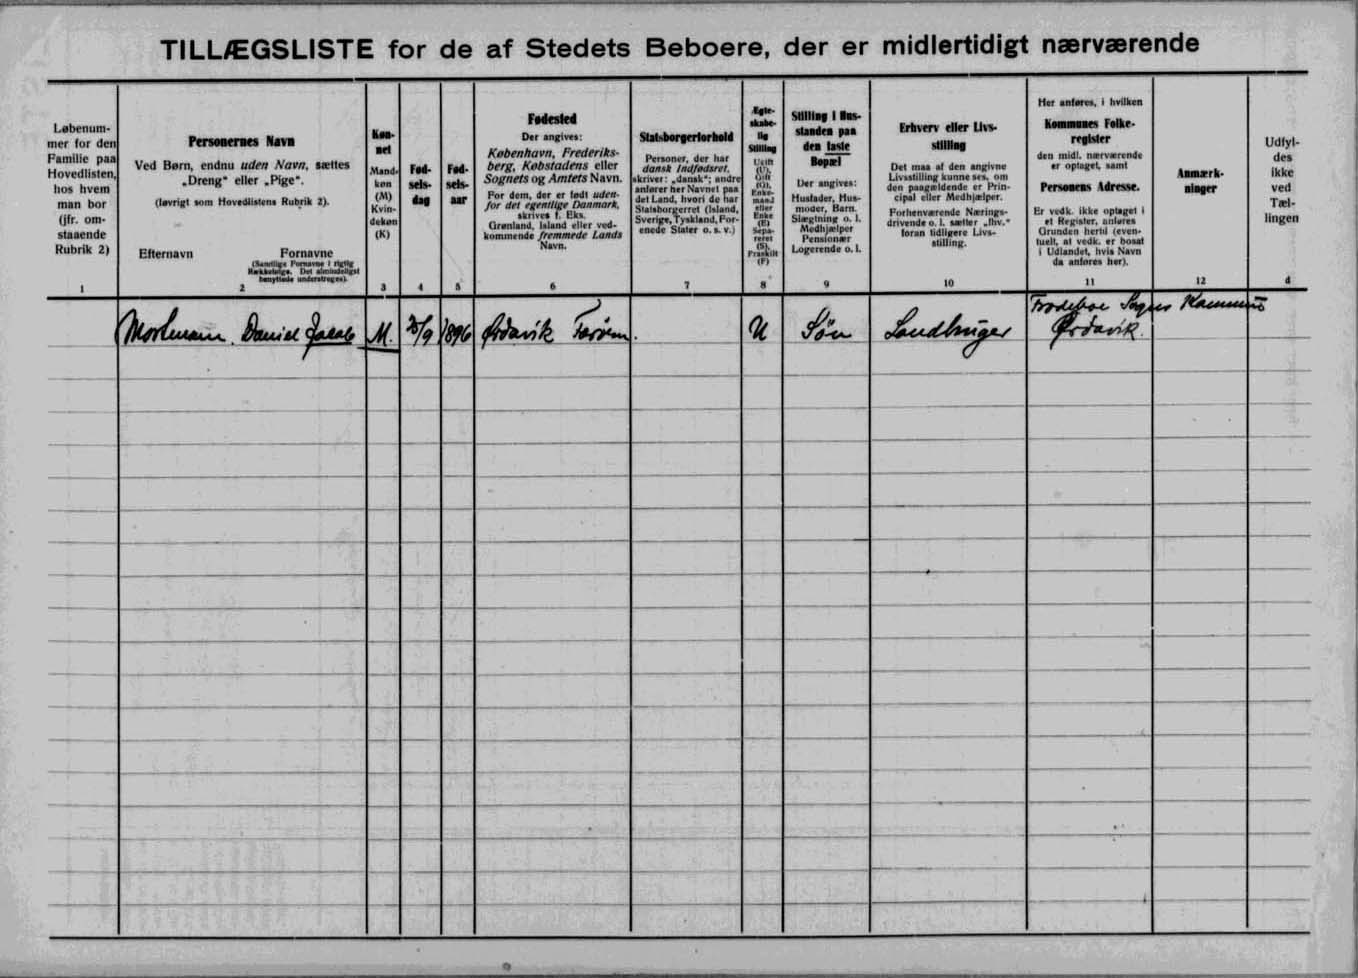 TILLÆGSLISTE for de af Stedets Beboere, der er midlertidigt nærværende
Løbenum-
mer for den
Familie paa
Hovedlisten,
hos hvem
man bor
(jfr. om-
staaende
Rubrik 2)
1
Personernes Navn
Ved Børn, endnu uden Navn, sættes
„Dreng" eller „Pige".
(Iøvrigt som Hovedlistens Rubrik 2).
Efternavn Fornavne
(Samtlige Fornavne i rigtig
Rækkefølge. Det almindeligst
benyttede understreges).
2
Køn-
net
Mand-
køn
(M)
Kvin-
dekøn
(K)
3
Fød-
sels-
dag
4
Fød-
sels-
aar
5
Fødested
Der angives:
København, Frederiks-
berg, Købstadens eller
Sognets og Amtets Navn.
For dem, der er født uden-
for det egentlige Danmark,
skrives f. Eks.
Grønland, Island eller ved-
kommende fremmede Lands
Navn.
6
Statsborgerforhold
Personer, der har
dansk Indfødsret,
skriver: „dansk"; andre
anfører her Navnet paa
det Land, hvori de har
Statsborgerret (Island,
Sverige, Tyskland, For-
enede Stater o. s. v.)
7
Ægte-
skabe-
lig
Stilling
Ugift
(U),
Gift
(G),
Enke-
mand
eller
Enke
(E)
Sepa-
reret
(S),
Fraskilt
(F)
8
Stilling i Hus-
standen paa
den faste
Bopæl
Der angives:
Husfader, Hus-
moder, Barn,
Slægtning o. l.
Medhjælper
Pensionær
Logerende o. l.
9
Erhverv eller Livs-
stilling
Det maa af den angivne
Livsstilling kunne ses, om
den paagældende er Prin-
cipal eller Medhjælper.
Forhenværende Nærings-
drivende o. l. sætter „fhv."
foran tidligere Livs-
stilling.
10
Her anføres, i hvilken
Kommunes Folke-
register
den midl. nærværende
er optaget, samt
Personens Adresse.
Er vedk. ikke optaget i
et Register, anføres
Grunden hertil (even-
tuelt, at vedk. er bosat
i Udlandet, hvis Navn
da anføres her).
11
Anmærk-
ninger
12
Udfyl-
des
ikke
ved
Tæl-
lingen
d
Mortensen. Daniel Jacob M. /9 1896 Ørdavik Færøern. U Søn Landbruger
Frodeboe Sogns Kommune
Ørdavik.